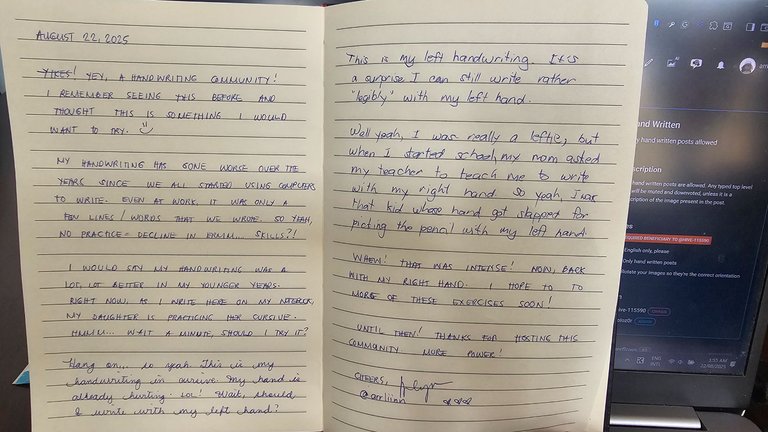 AUGUST 22, 2025
YIKES! YEY, A HANDWRITING COMMUNITY!
I REMEMBER SEEING THIS BEFORE AND
THOUGHT THIS IS SOMETHING I WOULD
WANT TO TRY.
MY HANDWRITING HAS GONE WORSE OVER THE
YEARS SINCE WE ALL STARTED USING COMPUTERS
TO WRITE. EVEN AT WORK, IT WAS ONLY A
FEW LINES / WORDS THAT WE WROTE. SO YEAH,
NO PRACTICE = DECLINE IN ERMM... SKILLS?!
I WOULD SAY MY HANDWRITING WAS A
LOT, LOT BETTER IN MY YOUNGER YEARS.
RIGHT NOW, AS I WRITE HERE ON MY NOTEBOOK,
MY DAUGHTER IS PRACTICING HER CURSIVE.
HMMM... WAIT A MINUTE, SHOULD I TRY IT?
Hang on... so yeah. This is my
handwriting in cursive. My hand is
already hurting. LOL! Wait, should
I write with my left hand?
This is my left handwriting. It's
a surprise I can still write rather
"legibly" with my left hand.
Well yeah, I was really a leftie, but
when I started school, my mom asked
my teacher to teach me to write
with my right hand. So yeah, I was
that kid whose hand got slapped for
picking the pencil with my left hand.
WHEW! THAT WAS INTENSE! NOW, BACK
WITH MY RIGHT HAND. I HOPE TO TO
MORE OF THESE EXERCISES SOON!
UNTIL THEN! THANKS FOR HOSTING THIS
COMMUNITY. MORE POWER!
CHEERS,
@arrliinn
and Written
hand written posts allowed
scription
hand written posts are allowed. Any typed top level
will be muted and downvoted, unless it is a
scription of the image present in the post.
REQUIRED BENEFICIARY TO @HIVE-115590
English only, please
Only hand written posts
Rotate your Images so they're the correct orientation
hive-115590
ENG
INTL
3:55 AM
22/08/2025